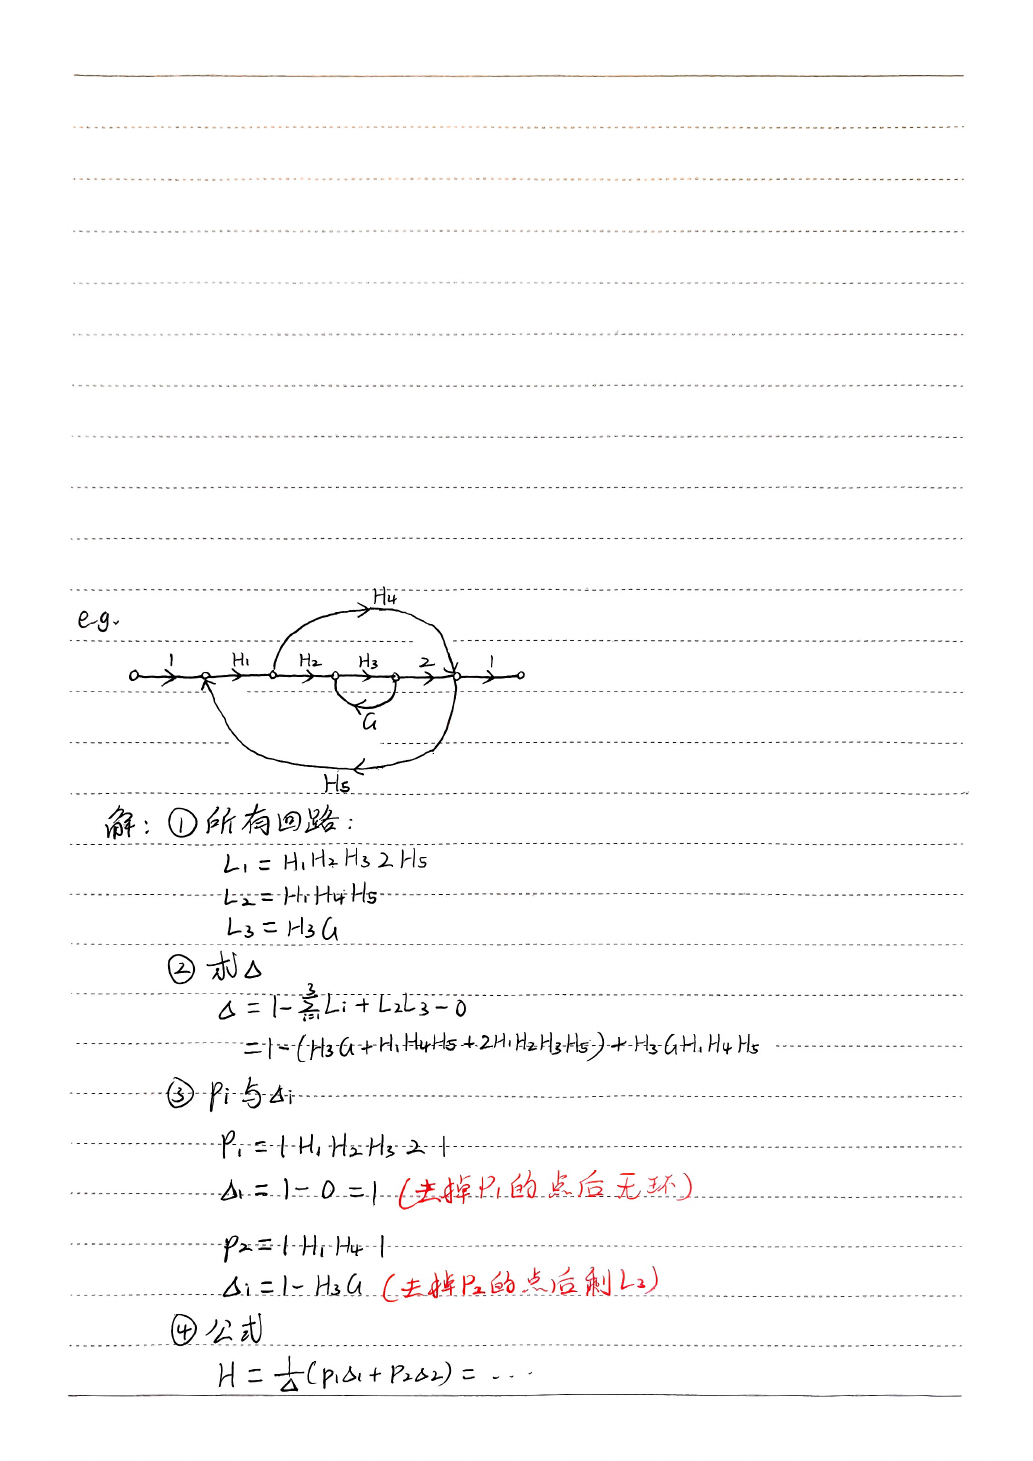 e.g.
H4
1 H1 H2 H3 2 1
G
H5
解: ① 所有回路:
L1 = H1 H2 H3 2 H5
L2 = H1 H4 H5
L3 = H3 G
② 求 Δ
Δ = 1 - \sum_{i=1}^{3} Li + L2L3 - 0
= 1 - (H3 G + H1 H4 H5 + 2 H1 H2 H3 H5) + H3 G H1 H4 H5
③ Pi 与 Δi
P1 = 1 H1 H2 H3 2 1
Δ1 = 1 - 0 = 1 (去掉P1的点后无环)
P2 = 1 H1 H4 1
Δi = 1 - H3 G (去掉P2的点后剩L3)
④ 公式
H = \frac{1}{Δ} (P1Δ1 + P2Δ2) = ...